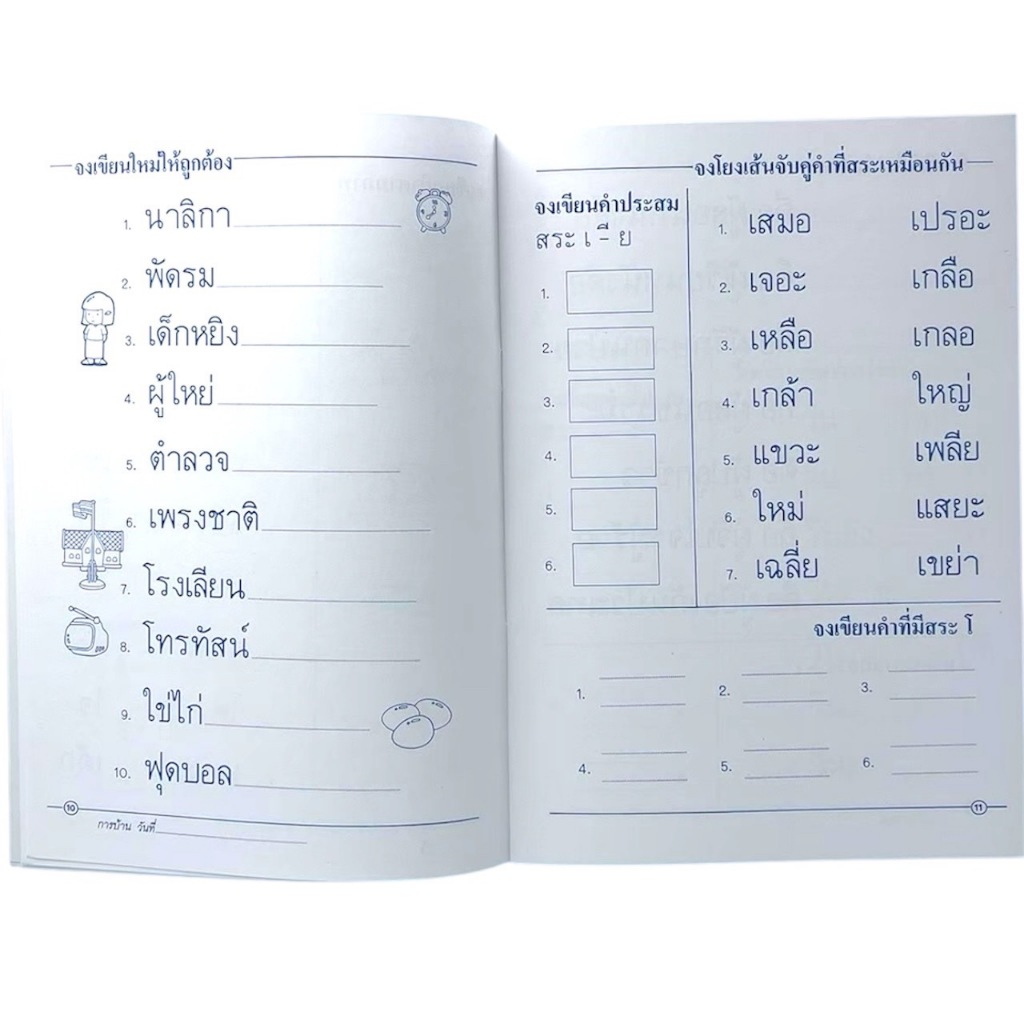 จงเขียนใหม่ให้ถูกต้อง
1. นาลิกา
2. พัดรม
3. เด็กหยิง
4. ผู้ใหย่
5. ตำลวจ
6. เพรงชาติ
7. โรงเลียน
8. โทรทัสน์
9. ใข่ไก่
10. ฟุดบอล
10
การบ้าน วันที่
จงโยงเส้นจับคู่คำที่สระเหมือนกัน
จงเขียนคำประสม
สระ เ-ีย
1.
2.
3.
4.
5.
6.
1. เสมอ เปรอะ
2. เจอะ เกลือ
3. เหลือ เกลอ
4. เกล้า ใหญ่
5. แขวะ เพลีย
6. ใหม่ แสยะ
7. เฉลี่ย เขย่า
จงเขียนคำที่มีสระ โ
1. 2. 3.
4. 5. 6.
11